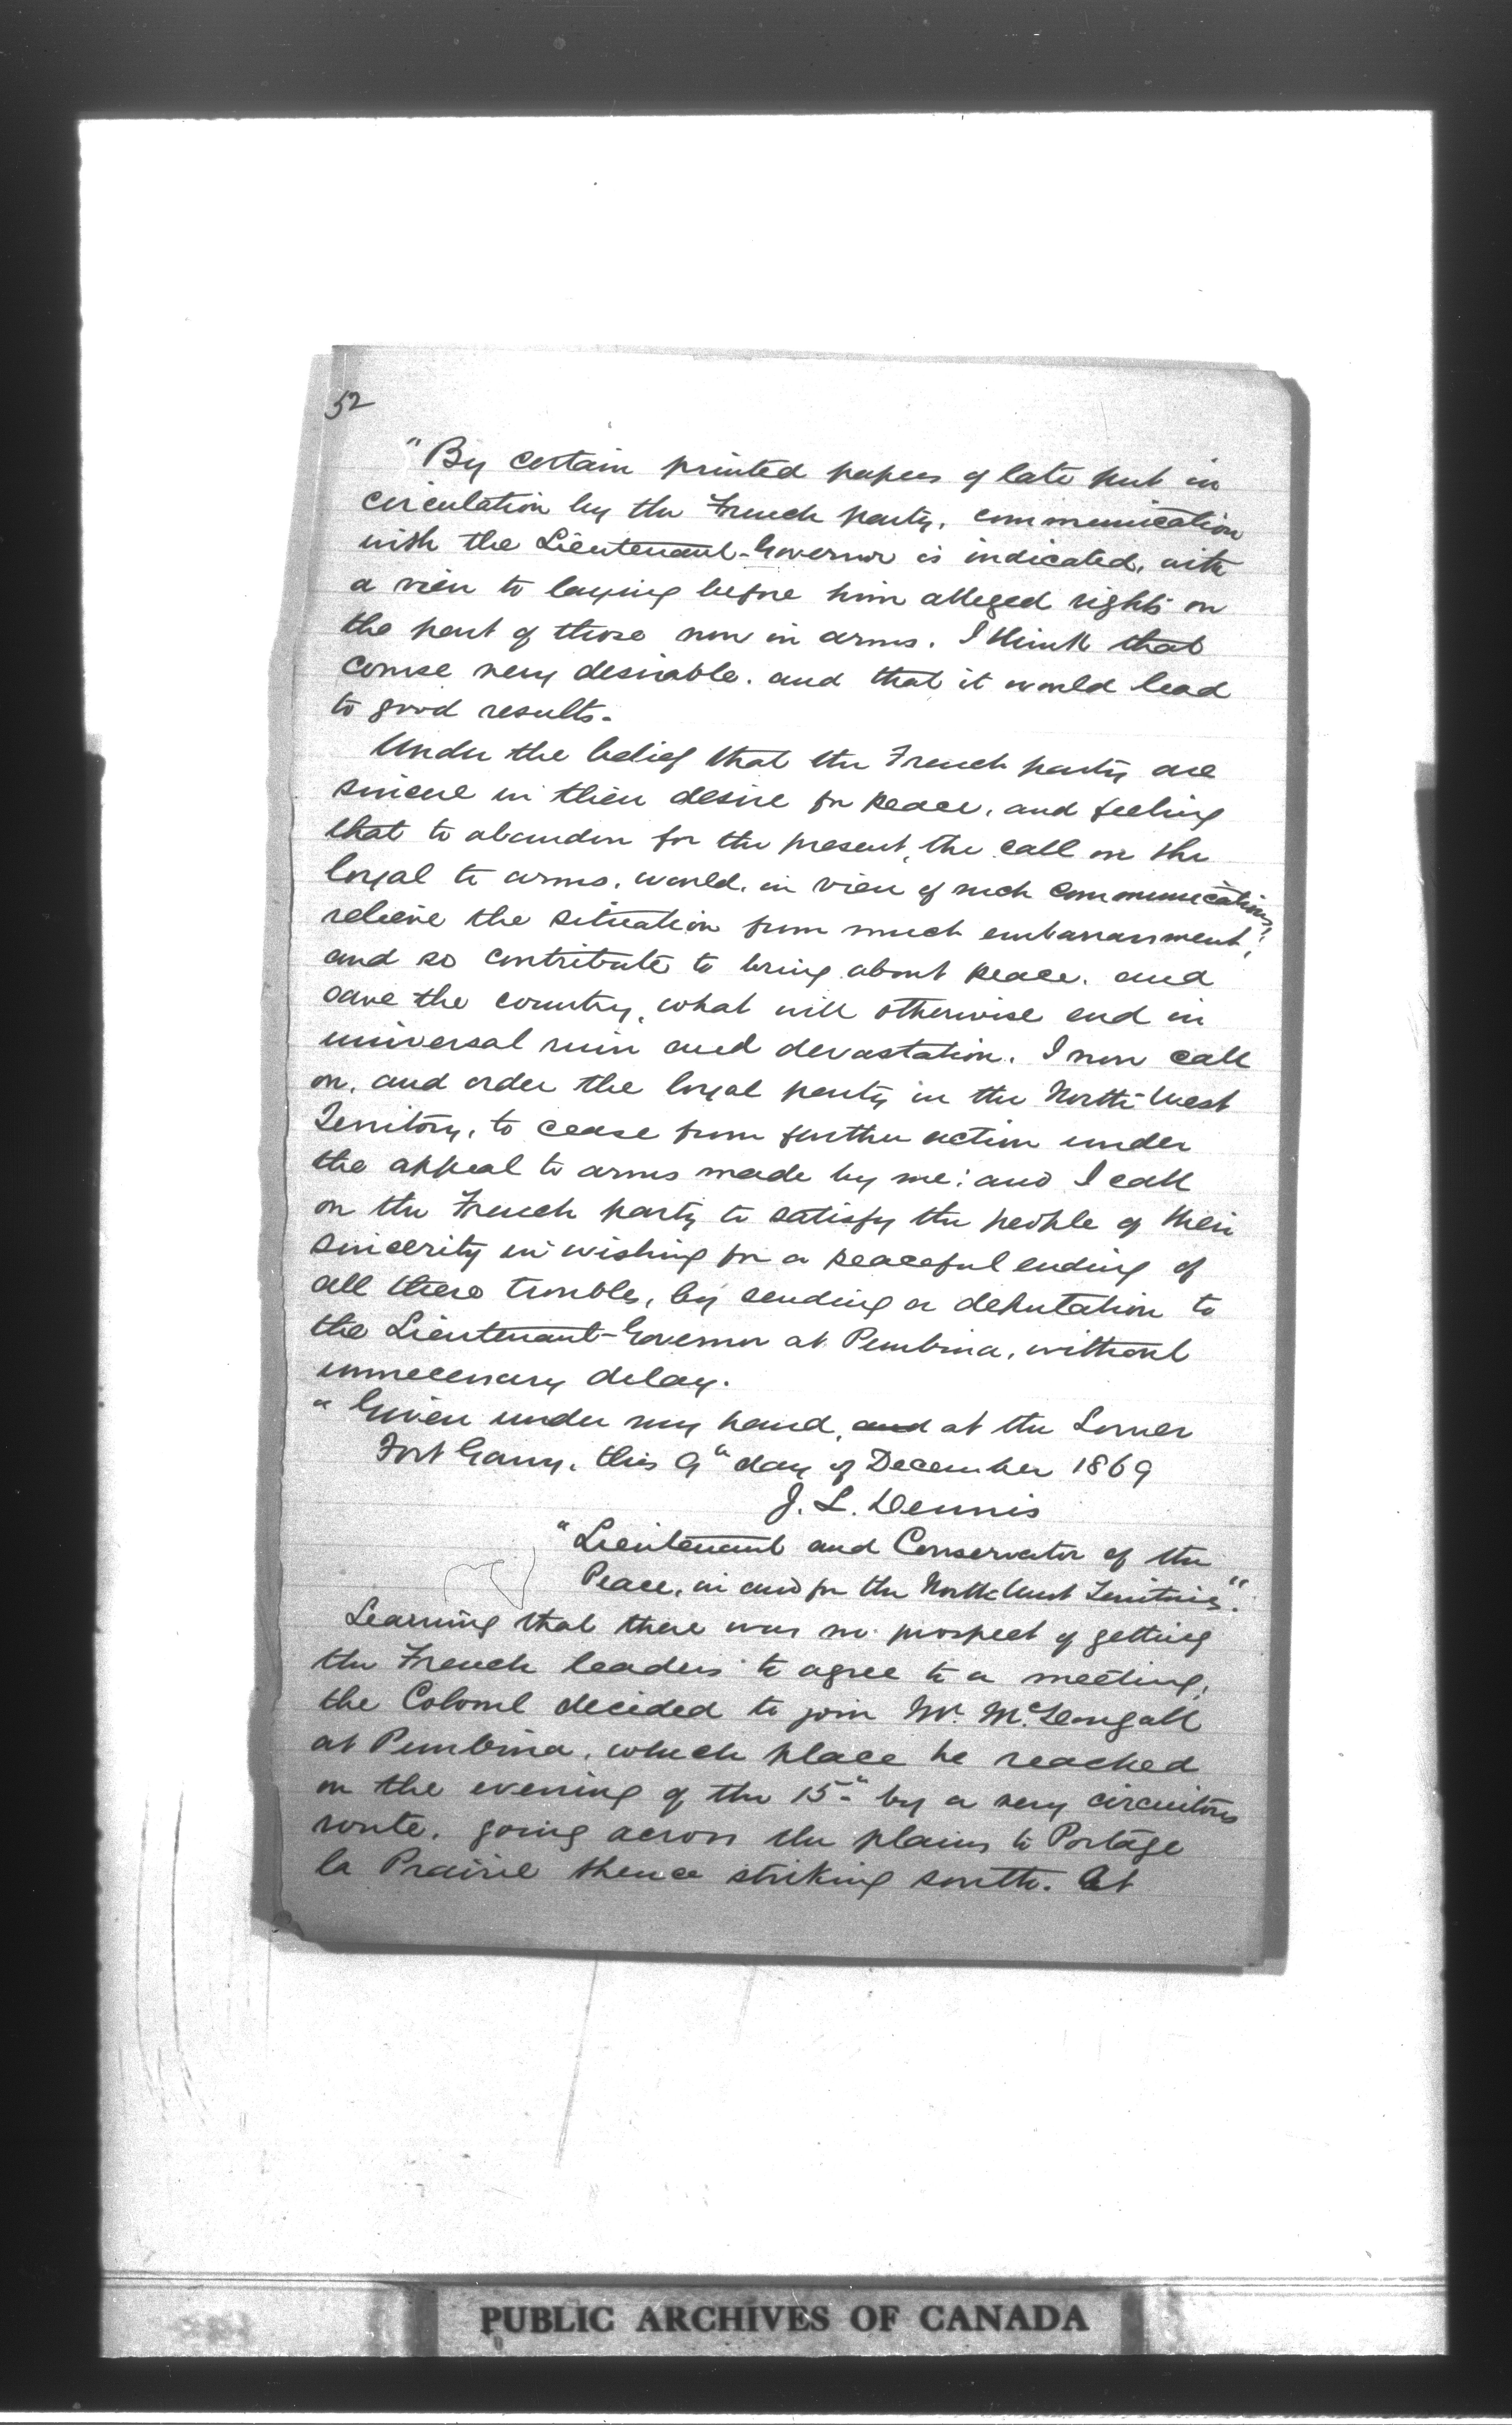 52
"By certain printed papers of late put in
circulation by the French party, communication
with the Lieutenant-Governor is indicated, with
a view to laying before him alleged rights on
the part of those now in arms. I think that
course very desirable, and that it would lead
to good results.
Under the belief that the French party are
sincere in their desire for peace, and feeling
that to abandon for the present, the call on the
loyal to arms, would, in view of such communications,
relieve the situation from much embarrassment,
and so contribute to bring about peace, and
save the country, what will otherwise end in
universal ruin and devastation. I now call
on, and order the loyal party in the North-West
Territory, to cease from further action under
the appeal to arms made by me; and I call
on the French party to satisfy the people of their
sincerity in wishing for a peaceful ending of
all these troubles, by sending a deputation to
the Lieutenant-Governor at Pembina, without
unnecessary delay.
"Given under my hand, and at the Lower
Fort Garry, this 9" day of December 1869
J. L. Dennis
"Lieutenant and Conservator of the
Peace, in and for the North West Territories".
Learning that there was no prospect of getting
the French leaders to agree to a meeting,
the Colonel decided to join Mr. McDougall
at Pembina, which place he reached
on the evening of the 15" by a very circuitous
route, going across the plains to Portage
la Prairie thence striking south. At
PUBLIC ARCHIVES OF CANADA